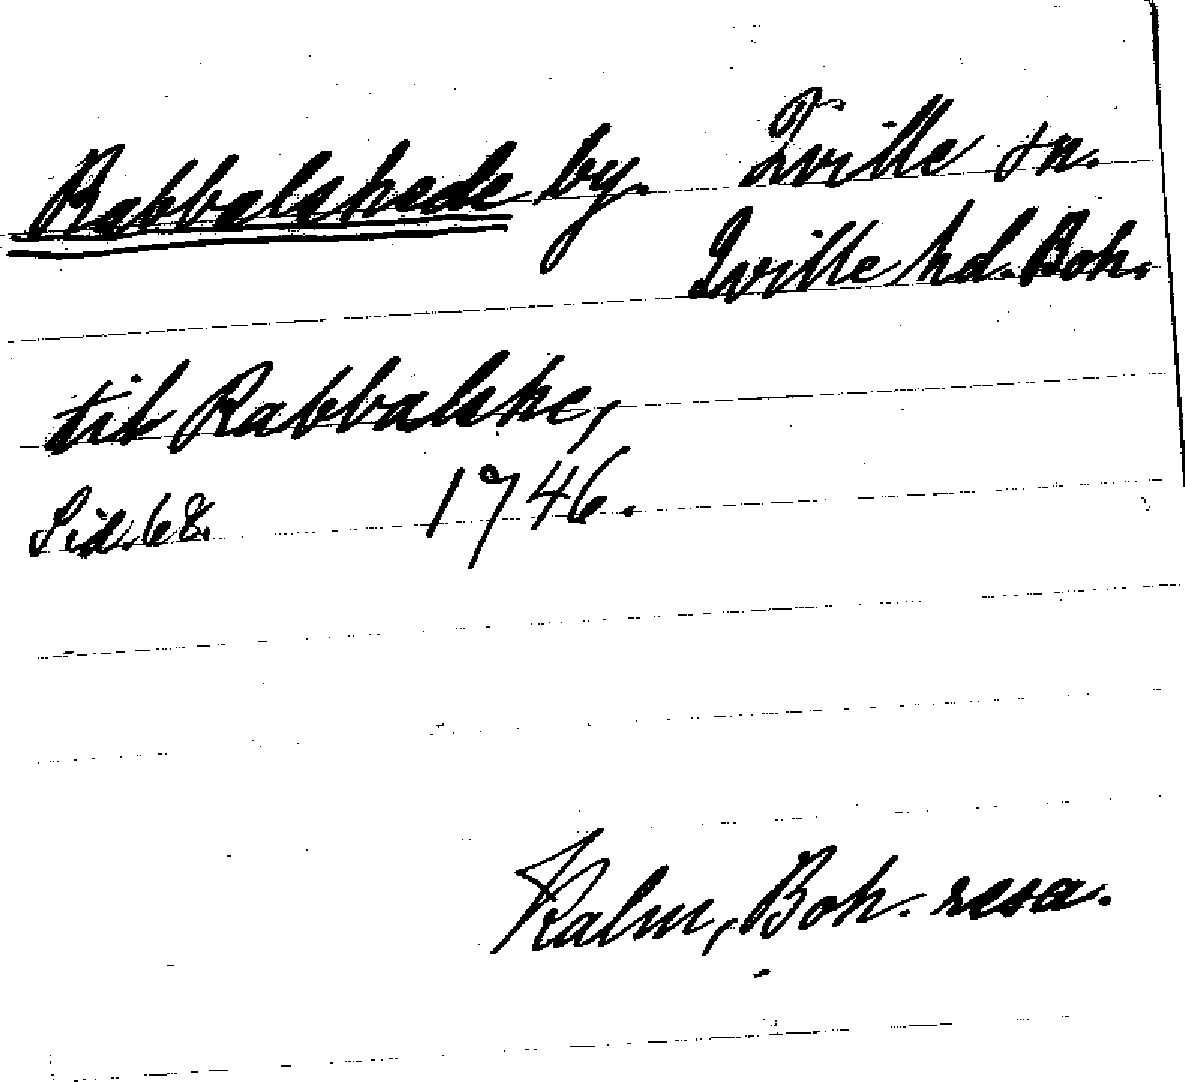 Rabbalshede by. Qville sn.
Qville hd. Boh.
till Rabbalshe,
Sid. 68. 1746.
Kalm, Boh. resa.